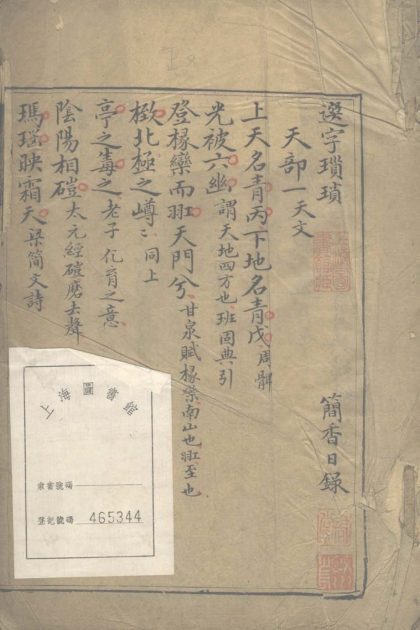 選字瑣瑣　簡香日錄
天部一 天文
上天名青丙下地名青戊 周髀
光被六幽 謂天地四方也 班固典引
登椽欒而羾天門兮 甘泉賦 椽欒南山也 羾至也
檄北極之嶟嶟 同上
亭之毒之 老子 化育之意
陰陽相磑 太元經 磑磨去聲
瑪瑙映霜天 梁簡文詩
上海圖書館
索書號碼
登記號碼 465344